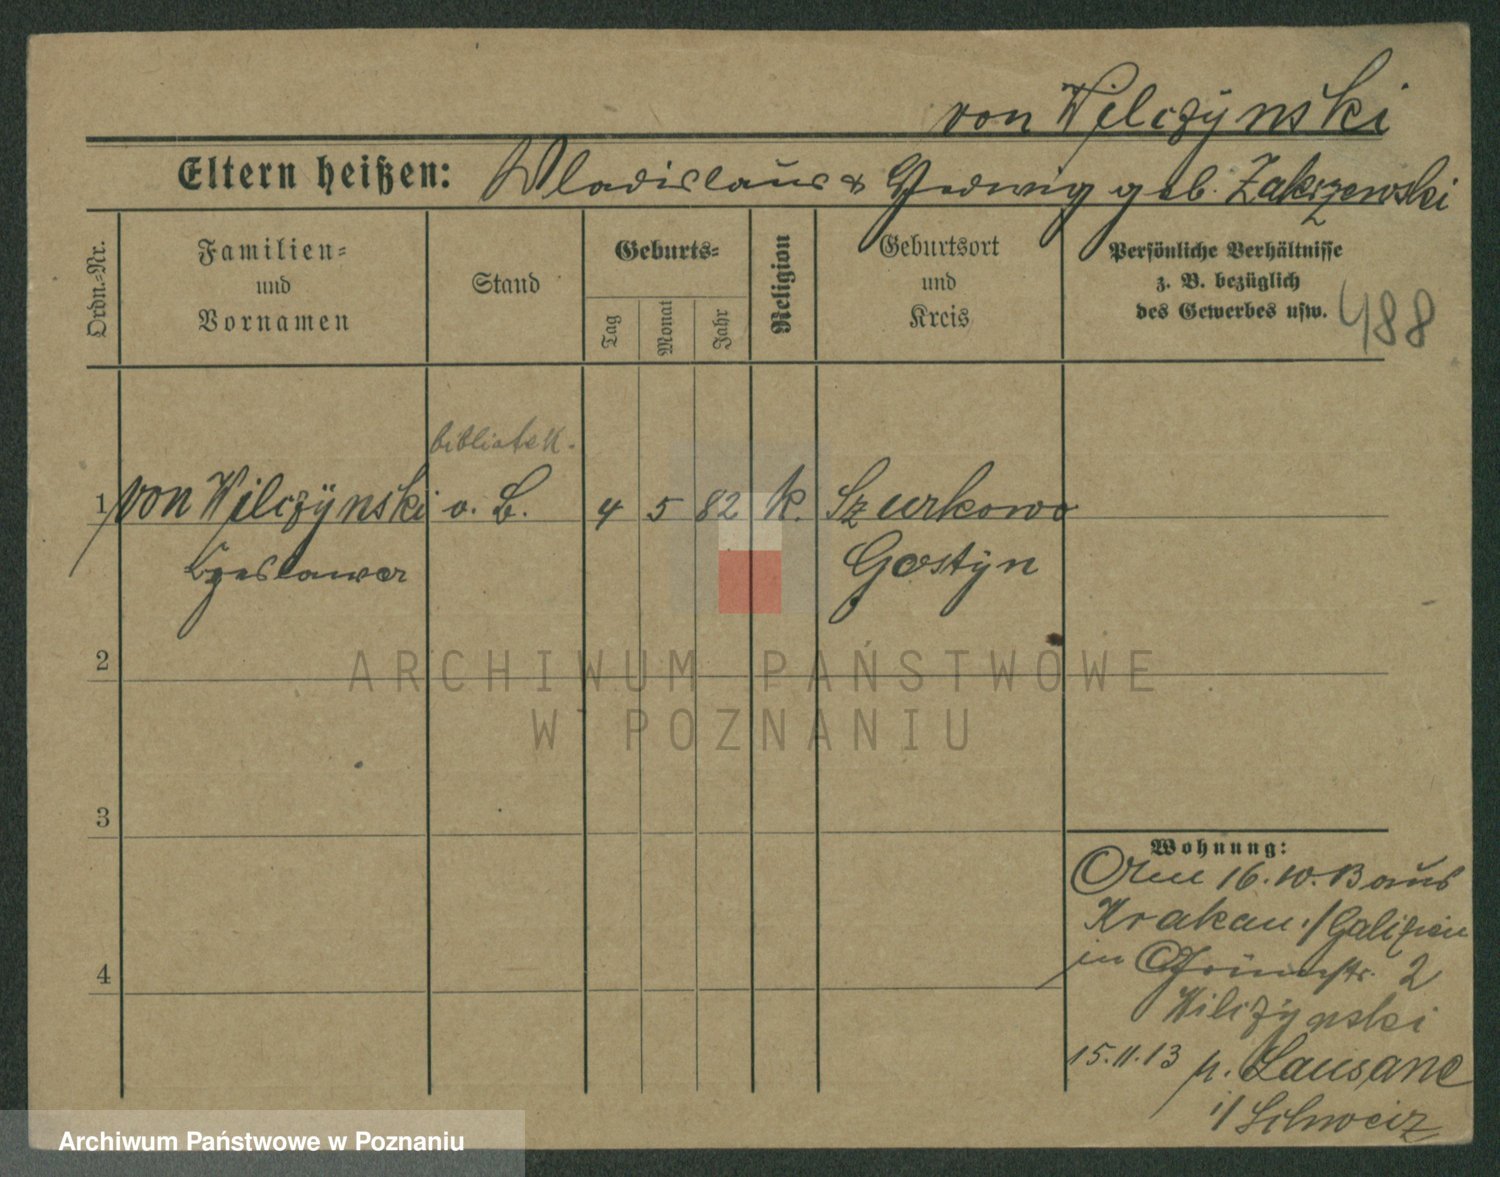 von Wilczynski
Eltern heißen: Wladislaus & Hedwig geb. Zakrzewski
Ordn.-Nr.
Familien-
und
Vornamen
Stand
Geburts-
Tag
Monat
Jahr
Religion
Geburtsort
und
Kreis
Persönliche Verhältnisse
z. B. bezüglich
des Gewerbes usw.
488
bibliotek.
1 von Wilczÿnski o. B. 4 5 82 k. Szurkowo
Czeslawer Gostÿn
2
ARCHIWUM PAŃSTWOWE
W POZNANIU
3
Wohnung:
16.10.13 aus
Krakau i/Galizien
in 2
Wilczynski
4
15.11.13 n. Lausane
i/ Schweiz
Archiwum Państwowe w Poznaniu